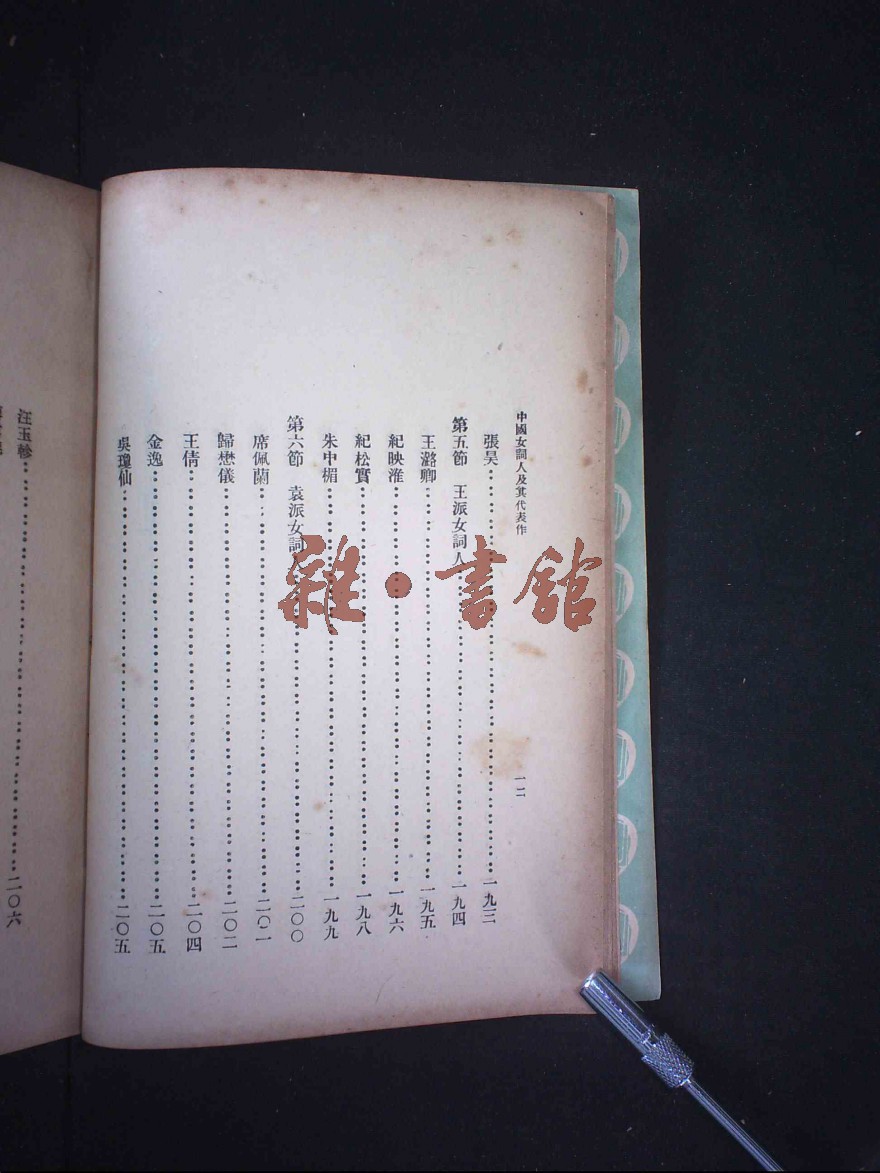 中國女詞人及其代表作
一二
張昊⋯⋯一九三
第五節 王派女詞人⋯⋯一九四
王潞卿⋯⋯一九五
紀映淮⋯⋯一九六
紀松實⋯⋯一九八
朱中楣⋯⋯一九九
第六節 袁派女詞人⋯⋯二〇〇
席佩蘭⋯⋯二〇一
歸懋儀⋯⋯二〇二
王倩⋯⋯二〇四
金逸⋯⋯二〇五
吳瓊仙⋯⋯二〇五
汪玉軫⋯⋯二〇六
雜·書館